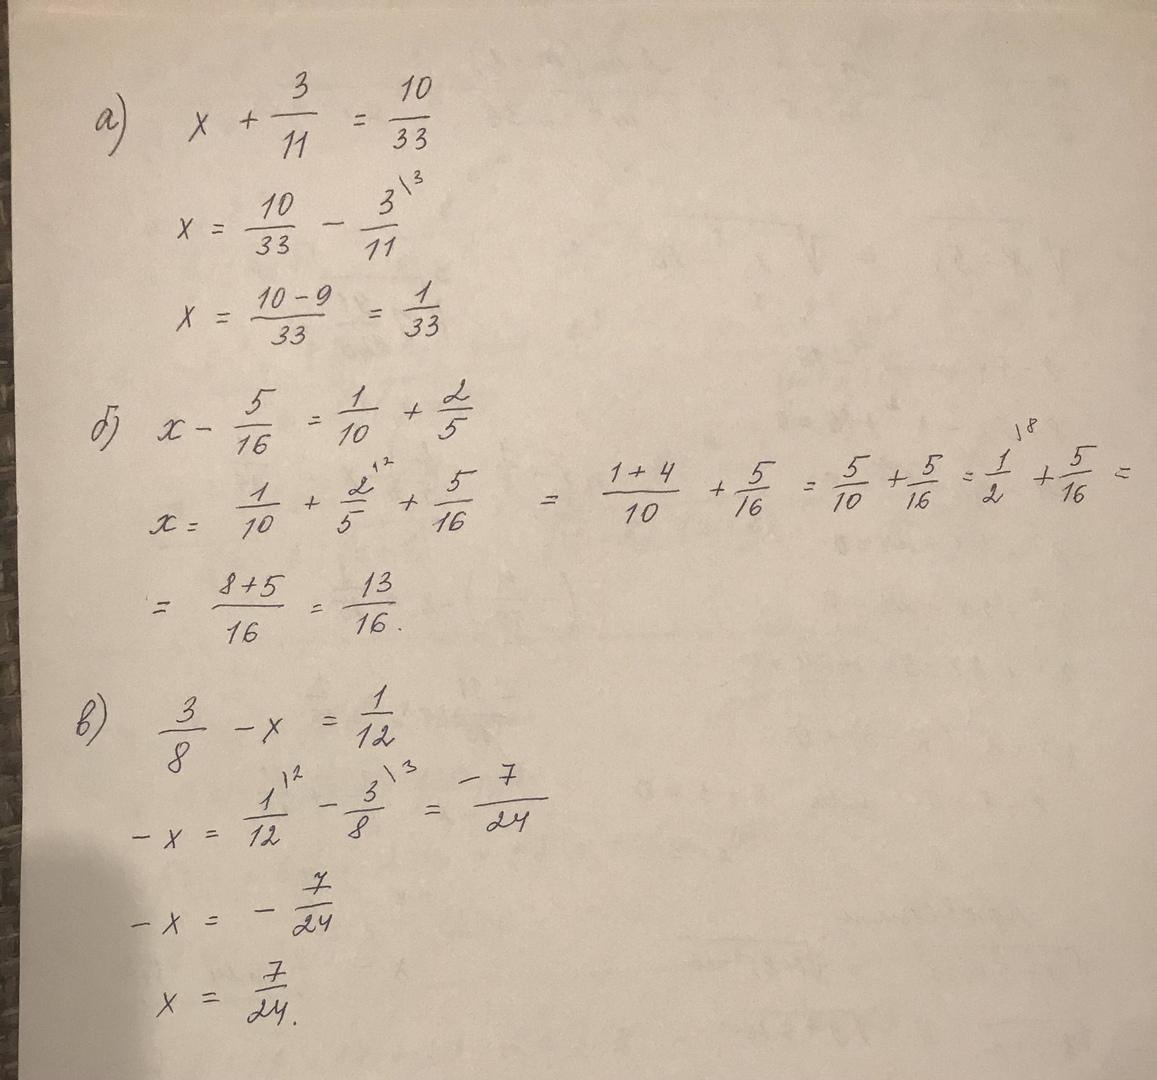 а) x + 3/11 = 10/33
x = 10/33 - 3\3/11
x = 10-9/33 = 1/33
б) x - 5/16 = 1/10 + 2/5
x = 1/10 + 2\2/5 + 5/16 = 1+4/10 + 5/16 = 5/10 + 5/16 = 1\8/2 + 5/16 =
= 8+5/16 = 13/16.
в) 3/8 - x = 1/12
- x = 1\2/12 - 3\3/8 = -7/24
- x = - 7/24
x = 7/24.